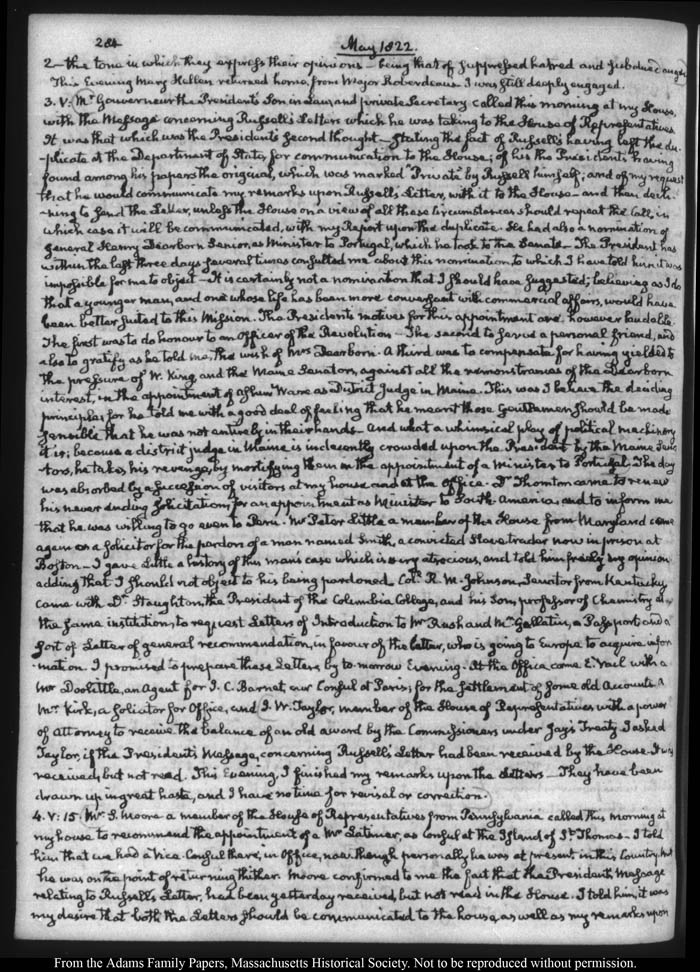 284
May 1822.
2 — the tone in which they express their opinions — being that of suppressed hatred and subdued anger.
This Evening Mary Hellen returned home, from Major Roberdeau's. I was still deeply engaged.
3. V: Mr Gouverneur the President's Son in Law, and private Secretary called this morning at my House,
with the Message concerning Russell's Letters which he was taking to the House of Representatives.
It was that which was the President's second thought — Stating the fact of Russell's having left the du-
plicate at the Department of State, for communication to the House; of his the President's having
found among his papers the original, which was marked "Private" by Russell himself; and of my request
that he would communicate my remarks upon Russell's Letter, with it to the House — and then decli-
-ning to send the Letter, unless the House on a view of all these circumstances should repeat the Call, in
which case it will be communicated, with my Report upon the duplicate. He had also a nomination of
General Henry Dearborn Senior, as Minister to Portugal, which he took to the Senate — The President has
within the last three days several times consulted me about this nomination, to which I have told him it was
impossible for me to object — It is certainly not a nomination that I should have suggested; believing as I do
that a younger man, and one whose life has been more conversant with commercial affairs, would have
been better suited to this Mission. The President's motives for this appointment are however laudable.
The first was to do honour to an Officer of the Revolution — The second to serve a personal friend, and
also to gratify as he told me, the wish of Mrs Dearborn. A third was to compensate for having yielded to
the pressure of W. King and the Maine Senators, against all the remonstrances of the Dearborn
interest, in the appointment of Ashur Ware as District Judge in Maine. This was I believe the deciding
principle; for he told me with a good deal of feeling that he meant those Gentlemen should be made
sensible that he was not entirely in their hands — And what a whimsical play of political machinery
it is; because a district judge in Maine is indecently crowded upon the President by the Maine Sena-
tors, he takes his revenge, by mortifying them in the appointment of a Minister to Portugal. The day
was absorbed by a succession of visitors at my house, and at the Office. Dr Thornton came to renew
his never ending solicitations for an appointment as Minister to South-America, and to inform me
that he was willing to go even to Peru. Mr Peter Little a member of the House from Maryland came
again as a solicitor for the pardon of a man named Smith, a convicted Slave trader now in prison at
Boston — I gave Little a history of this man's case which is very atrocious, and told him freely my opinion
adding that I should not object to his being pardoned. Coll. R. M. Johnson, Senator from Kentucky,
came with Dr Staughton, the President of the Columbia College, and his Son, professor of Chemistry at
the same institution, to request Letters of Introduction to Mr Rush and Mr Gallatin, a Passport and a
sort of Letter of general recommendation, in favour of the latter, who is going to Europe to acquire infor-
-mation. I promised to prepare these Letters, by to-morrow Evening. At the Office came E. Vail with a
Mr Doolittle, an Agent for I. C. Barnet, our Consul at Paris; for the settlement of some old Accounts. A
Mr Kirk, a solicitor for Office, and J. W. Taylor, member of the House of Representatives with a power
of Attorney to receive the balance of an old award by the Commissioners under Jay's Treaty. I asked
Taylor, if the President's Message, concerning Russell's Letter had been received by the House. It was
received, but not read. This Evening, I finished my remarks upon the Letters — They have been
drawn up in great haste, and I have no time for revisal or correction.
4. V: 15. Mr S. Moore a member of the House of Representatives from Pennsylvania called this morning at
my house to recommend the appointment of a Mr Latimer, as Consul at the Island of St Thomas — I told
him that we had a Vice-Consul there, in Office, now though personally he was at present in this Country, but
he was on the point of returning thither. Moore confirmed to me the fact that the President's Message
relating to Russell's Letter, had been yesterday received, but not read in the House. I told him, it was
my desire that both the Letters should be communicated to the house, as well as my remarks upon
From the Adams Family Papers, Massachusetts Historical Society. Not to be reproduced without permission.